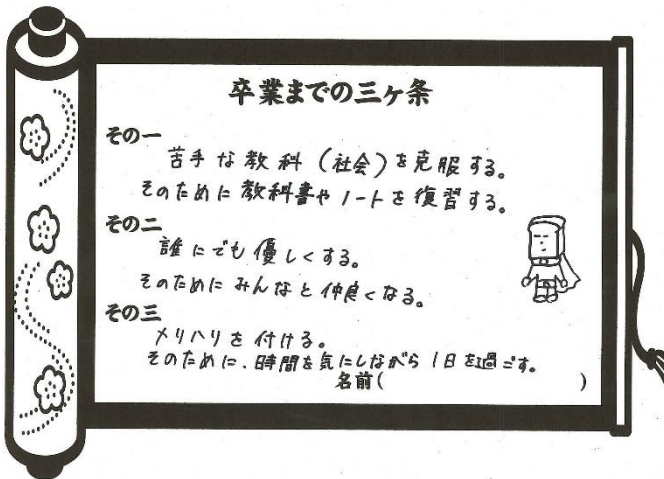 卒業までの三ヶ条
その一
苦手な教科（社会）を克服する。
そのために教科書やノートを復習する。
その二
誰にでも優しくする。
そのためにみんなと仲良くなる。
その三
メリハリを付ける。
そのために、時間を気にしながら1日を過ごす。
名前(　　　　　　　　)